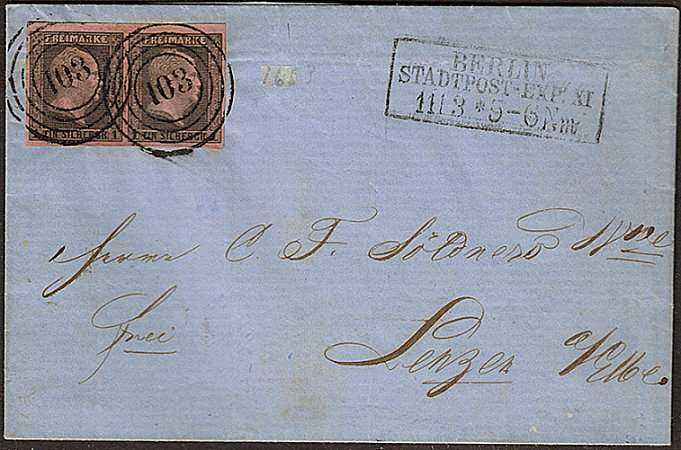 FREIMARKE FREIMARKE
103 103
1 EIN SILBERGR. 1 1 EIN SILBERGR. 1
BERLIN
STADTPOST-EXP. XI
11 13 * 5-6 Nm
Herrn C. F. Söldners Wwe
frei
Lenzen a/Elbe.